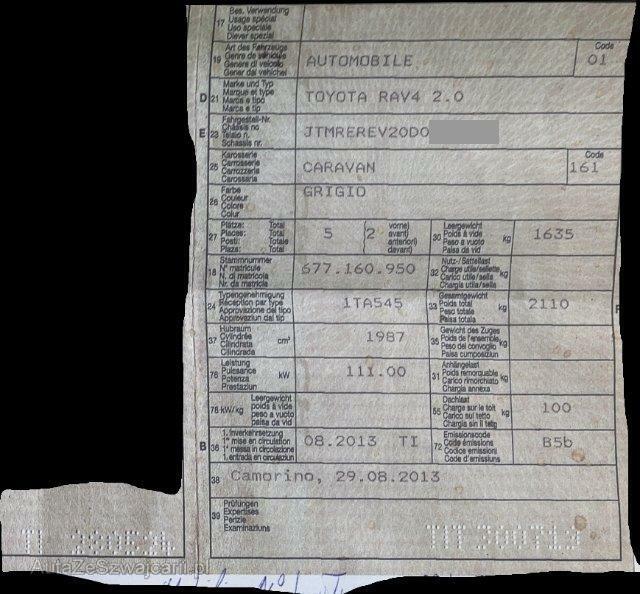 17 Bes. Verwendung
Usage spécial
Uso speciale
Diever spezial
19 Art des Fahrzeugs
Genre de véhicule
Genere di veicolo
Gener dal vehichel
AUTOMOBILE
Code
01
D 21 Marke und Typ
Marque et type
Marca e tipo
Marca e tip
TOYOTA RAV4 2.0
E 23 Fahrgestell-Nr.
Châssis no
Telaio n.
Schassis nr.
JTMREREV20D0
25 Karosserie
Carrosserie
Carrozzeria
Carossaria
CARAVAN
Code
161
26 Farbe
Couleur
Colore
Colur
GRIGIO
27 Plätze: Total
Places: Total
Posti: Totale
Plazs: Total
5
(2 vorne)
avant)
anteriori)
davant)
30 Leergewicht
Poids à vide
Peso a vuoto
Paisa da vid
kg
1635
18 Stammnummer
N° matricule
N. di matricola
Nr. da matricla
677.160.950
32 Nutz-/Sattellast
Charge utile/sellette
Carico utile/sella
Chargia utila/sella
kg
24 Typengenehmigung
Réception par type
Approvazione del tipo
Approvaziun dal tip
1TA545
33 Gesamtgewicht
Poids total
Peso totale
Paisa totala
kg
2110
37 Hubraum
Cylindrée
Cilindrata
Cilindrada
cm³
1987
35 Gewicht des Zuges
Poids de l'ensemble
Peso del convoglio
Paisa cumposiziun
kg
76 Leistung
Puissance
Potenza
Prestaziun
kW
111.00
31 Anhängelast
Poids remorquable
Carico rimorchiato
Chargia annexa
kg
78 kW/kg Leergewicht
poids à vide
peso a vuoto
paisa da vid
55 Dachlast
Charge sur le toit
Carico sul tetto
Chargia sin il tetg
kg
100
B 36 1. Inverkehrsetzung
1re mise en circulation
1a messa in circolazione
1. entrada en circulaziun
08.2013 TI
72 Emissionscode
Code émissions
Codice emissioni
Code d'emissiuns
B5b
38 Camorino, 29.08.2013
39 Prüfungen
Expertises
Perizie
Examinaziuns
AutaZeSzwajcarii.pl